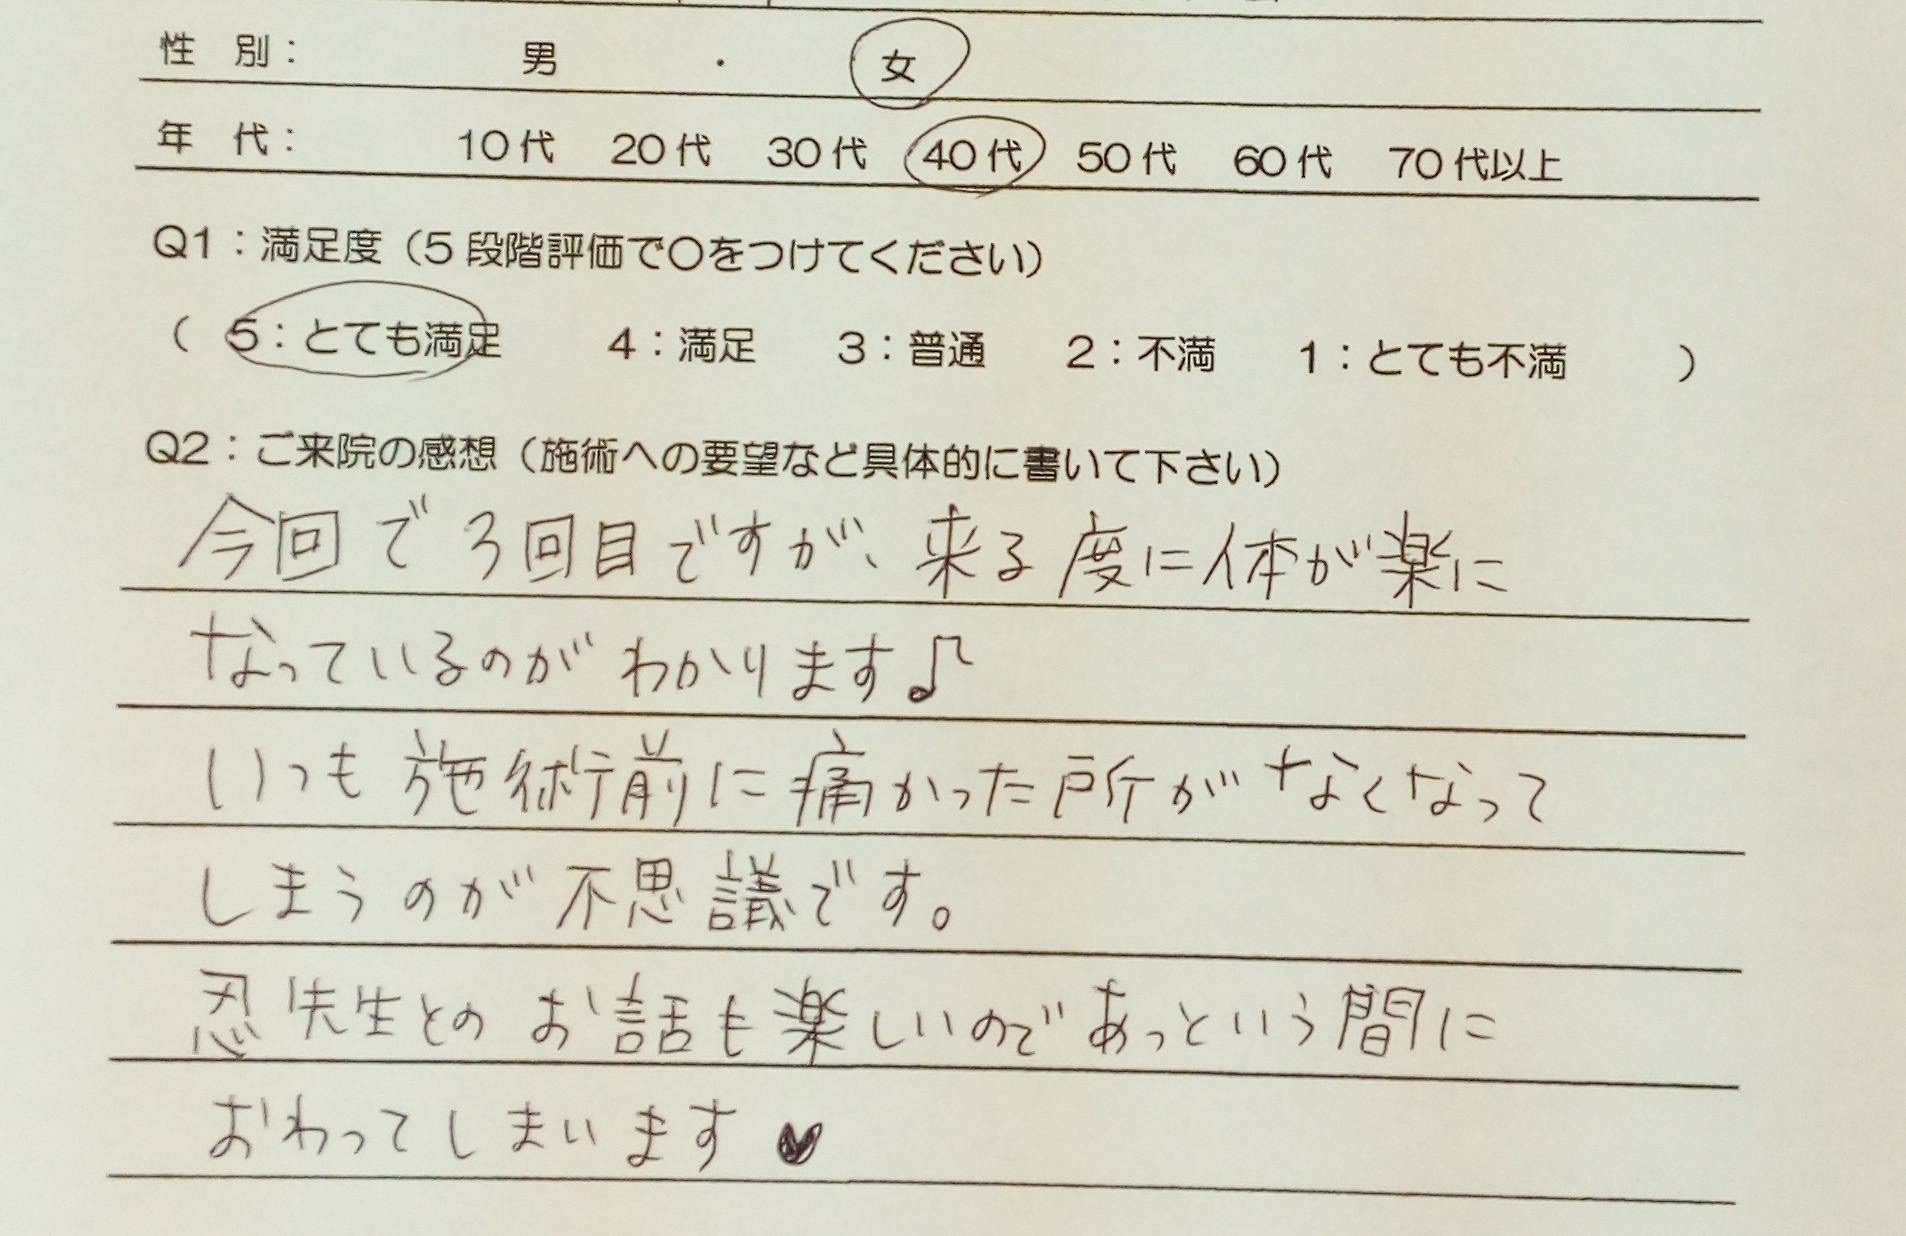 性 別： 男 ・ 女
年 代： 10代 20代 30代 40代 50代 60代 70代以上
Q1：満足度（5段階評価で〇をつけてください）
（ 5：とても満足 4：満足 3：普通 2：不満 1：とても不満 ）
Q2：ご来院の感想（施術への要望など具体的に書いて下さい）
今回で3回目ですが、来る度に体が楽に
なっているのがわかります♪
いつも施術前に痛かった所がなくなって
しまうのが不思議です。
忍先生とのお話も楽しいのであっという間に
おわってしまいます♥